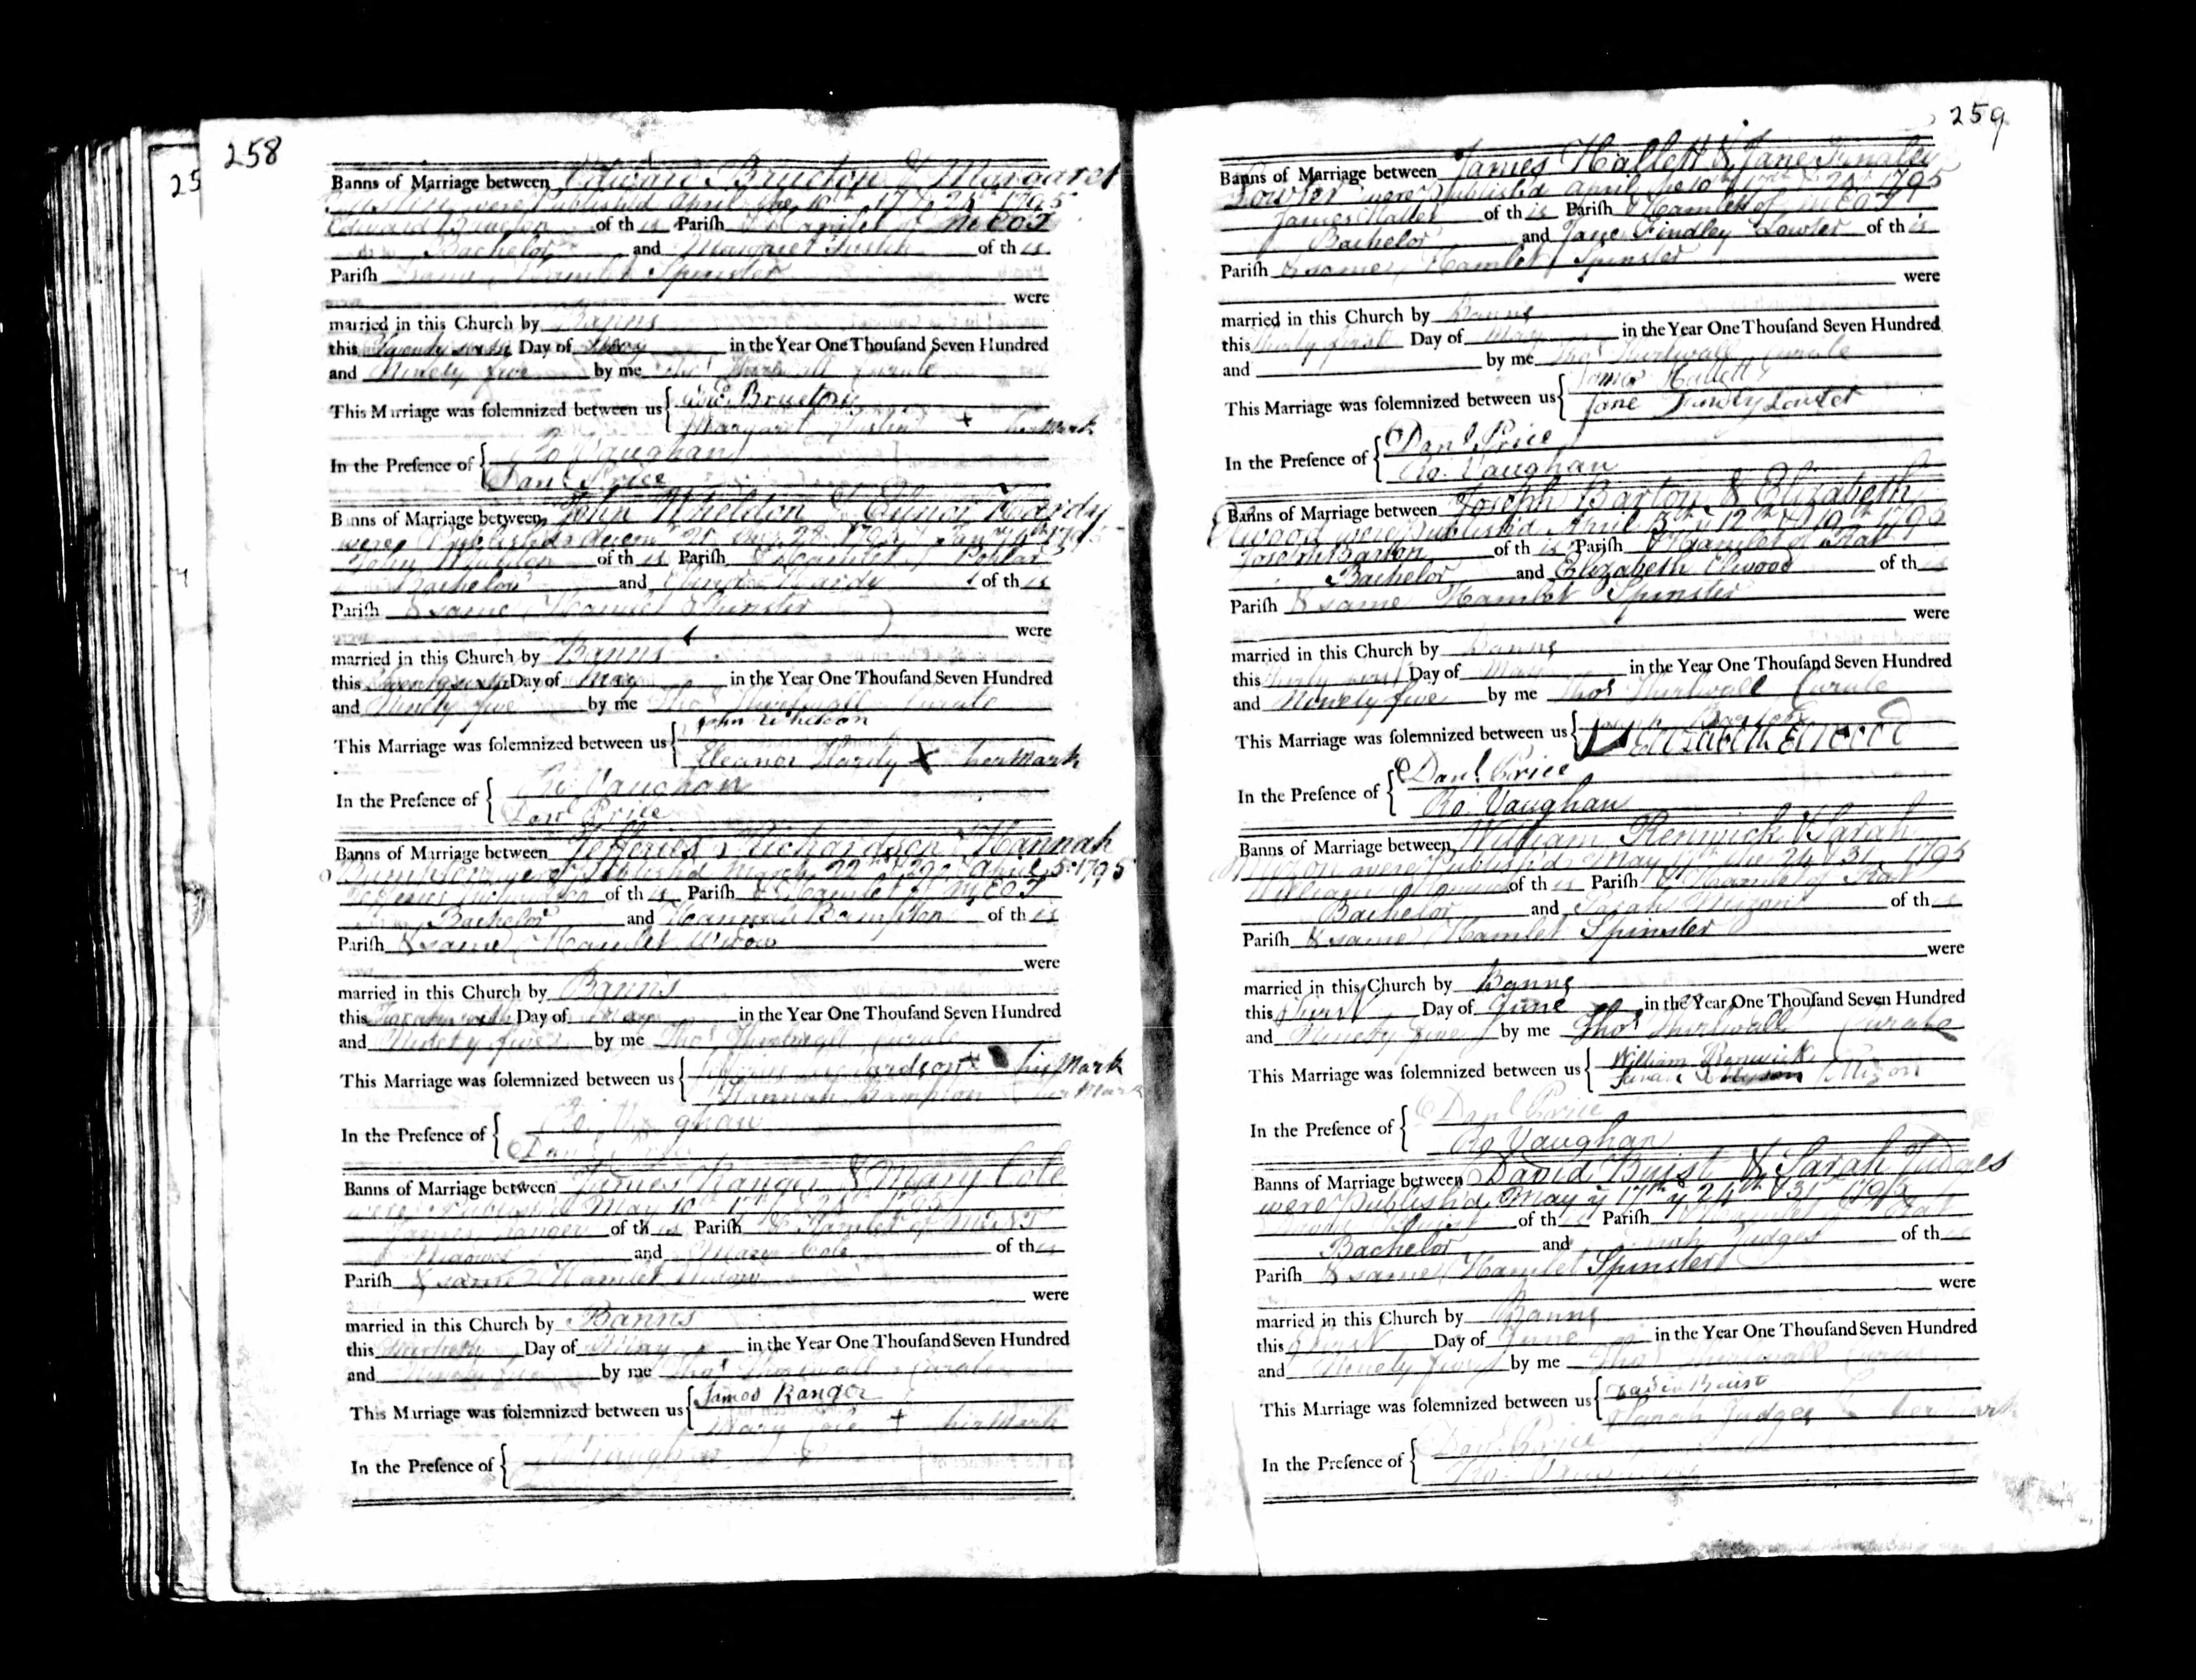 258
Banns of Marriage between Edward Brueton & Margaret
were Published April the 10th 17 & 24th 1795
Edward Brueton of this Parish & Hamlet of MEOT
Bachelor and Margaret of this
Parish same Hamlet Spinster
were
married in this Church by Banns
this Twenty sixth Day of May in the Year One Thouſand Seven Hundred
and Ninety five by me Thos Thirlwall Curate
This Marriage was ſolemnized between us Edwd Brueton
Margaret + her Mark
In the Preſence of Ro Vaughan
Danl Price
Banns of Marriage between John Wheldon & Elinor Hardy
were Publishd
John Wheldon of this Parish & Hamlet of Poplar
Bachelor and Hardy of this
Parish & same Hamlet Spinster
were
married in this Church by Banns
this Twenty sixth Day of May in the Year One Thouſand Seven Hundred
and Ninety five by me Thos Thirlwall Curate
This Marriage was ſolemnized between us John Wheldon
Eleanor Hardy X her Mark
In the Preſence of Ro Vaughan
Danl Price
Banns of Marriage between Jefferies Richardson & Hannah
were Publishd March 22d & 29 April 5th 1795
Jefferies Richardson of this Parish & Hamlet of MEOT
Bachelor and Hannah Bampton of this
Parish & same Hamlet Widow
were
married in this Church by Banns
this Twenty sixth Day of May in the Year One Thouſand Seven Hundred
and Ninety five by me Thos Thirlwall Curate
This Marriage was ſolemnized between us Richardson his Mark
Hannah Bampton her Mark
In the Preſence of Ro Vaughan
Dan
Banns of Marriage between James Ranger & Mary Cole
were Publishd May 10th 17th & 24th 1795
James Ranger of this Parish & Hamlet of
Widower and Mary Cole of this
Parish & same Hamlet Widow
were
married in this Church by Banns
this Day of May in the Year One Thouſand Seven Hundred
and Ninety five by me Thos Thirlwall Curate
This Marriage was ſolemnized between us James Ranger
Mary Cole + her Mark
In the Preſence of Vaughan
259
Banns of Marriage between James Hallett & Jane Findley
Lowter were Publishd April the 10th 17th & 24th 1795
James Hallett of this Parish & Hamlet of MEOT
Bachelor and Jane Findley Lowter of this
Parish & same Hamlet Spinster
were
married in this Church by Banns
this thirty first Day of May in the Year One Thouſand Seven Hundred
and by me Thos Thirlwall Curate
This Marriage was ſolemnized between us James Hallett
Jane Lowter
In the Preſence of Danl Price
Ro. Vaughan
Banns of Marriage between Joseph Barton & Elizabeth
Elwood were Publishd April 5th 12th & 19th 1795
Joseph Barton of this Parish & Hamlet of Rat
Bachelor and Elizabeth Elwood of this
Parish & same Hamlet Spinster
were
married in this Church by Banns
this thirty first Day of May in the Year One Thouſand Seven Hundred
and Ninety five by me Thos Thirlwall Curate
This Marriage was ſolemnized between us Joseph Barton
Elizabeth Elwood
In the Preſence of Danl Price
Ro. Vaughan
Banns of Marriage between William Renwick & Sarah
Mizon were Publishd May 17th the 24 & 31 1795
William Renwick of this Parish & Hamlet of Rat
Bachelor and Sarah Mizon of this
Parish & same Hamlet Spinster
were
married in this Church by Banns
this First Day of June in the Year One Thouſand Seven Hundred
and Ninety five by me Thos Thirlwall Curate
This Marriage was ſolemnized between us William Renwick
Sarah Mizon
In the Preſence of Danl Price
Ro Vaughan
Banns of Marriage between David Buist & Sarah Judges
were Publishd May ye 17th ye 24th & 31 1795
David Buist of this Parish & Hamlet of Rat
Bachelor and Sarah Judges of this
Parish & same Hamlet Spinster
were
married in this Church by Banns
this First Day of June in the Year One Thouſand Seven Hundred
and Ninety five by me Thos Thirlwall Curate
This Marriage was ſolemnized between us David Buist
Sarah Judges her mark
In the Preſence of Danl Price
Ro. Vaughan